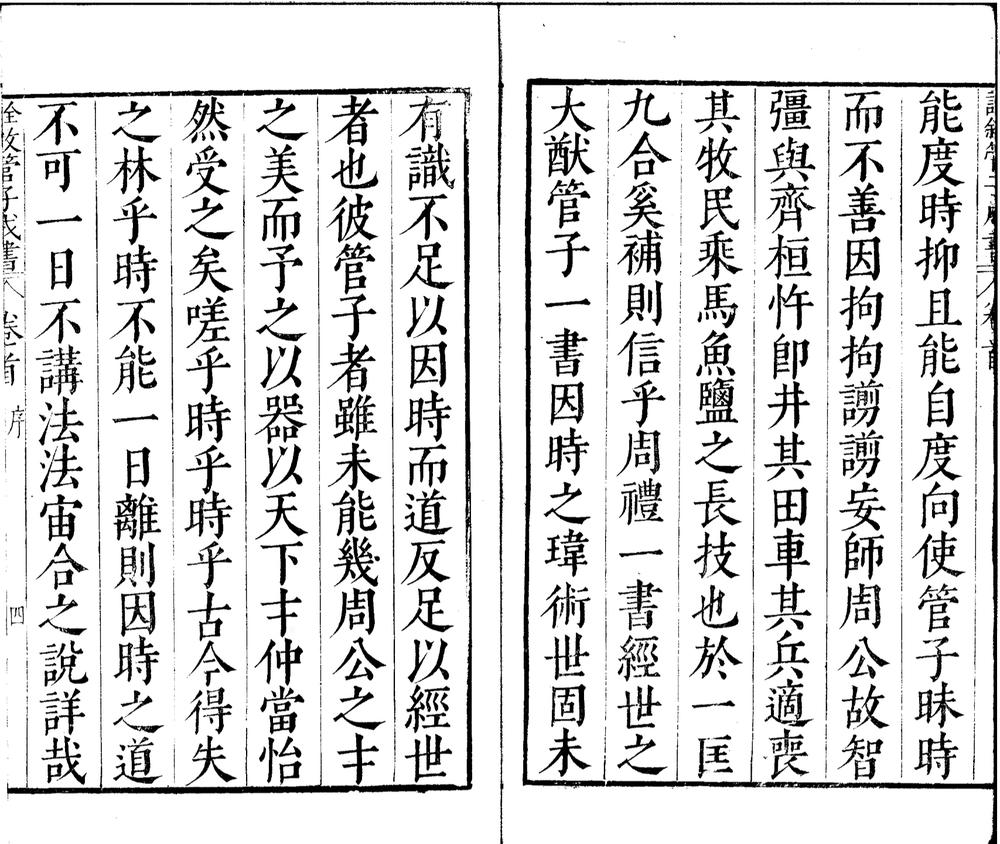 能度時抑且能自度向使管子昧時
而不善因拘拘謭謭妄師周公故智
彊與齊桓忤卽井其田車其兵適喪
其牧民乘馬魚鹽之長技也於一匡
九合奚補則信乎周禮一書經世之
大猷管子一書因時之瑋術世固未
有識不足以因時而道反足以經世
者也彼管子者雖未能幾周公之才
之美而予之以器以天下才仲當怡
然受之矣嗟乎時乎時乎古今得失
之林乎時不能一日離則因時之道
不可一日不講法法宙合之說詳哉
管子 書 卷首 序 四